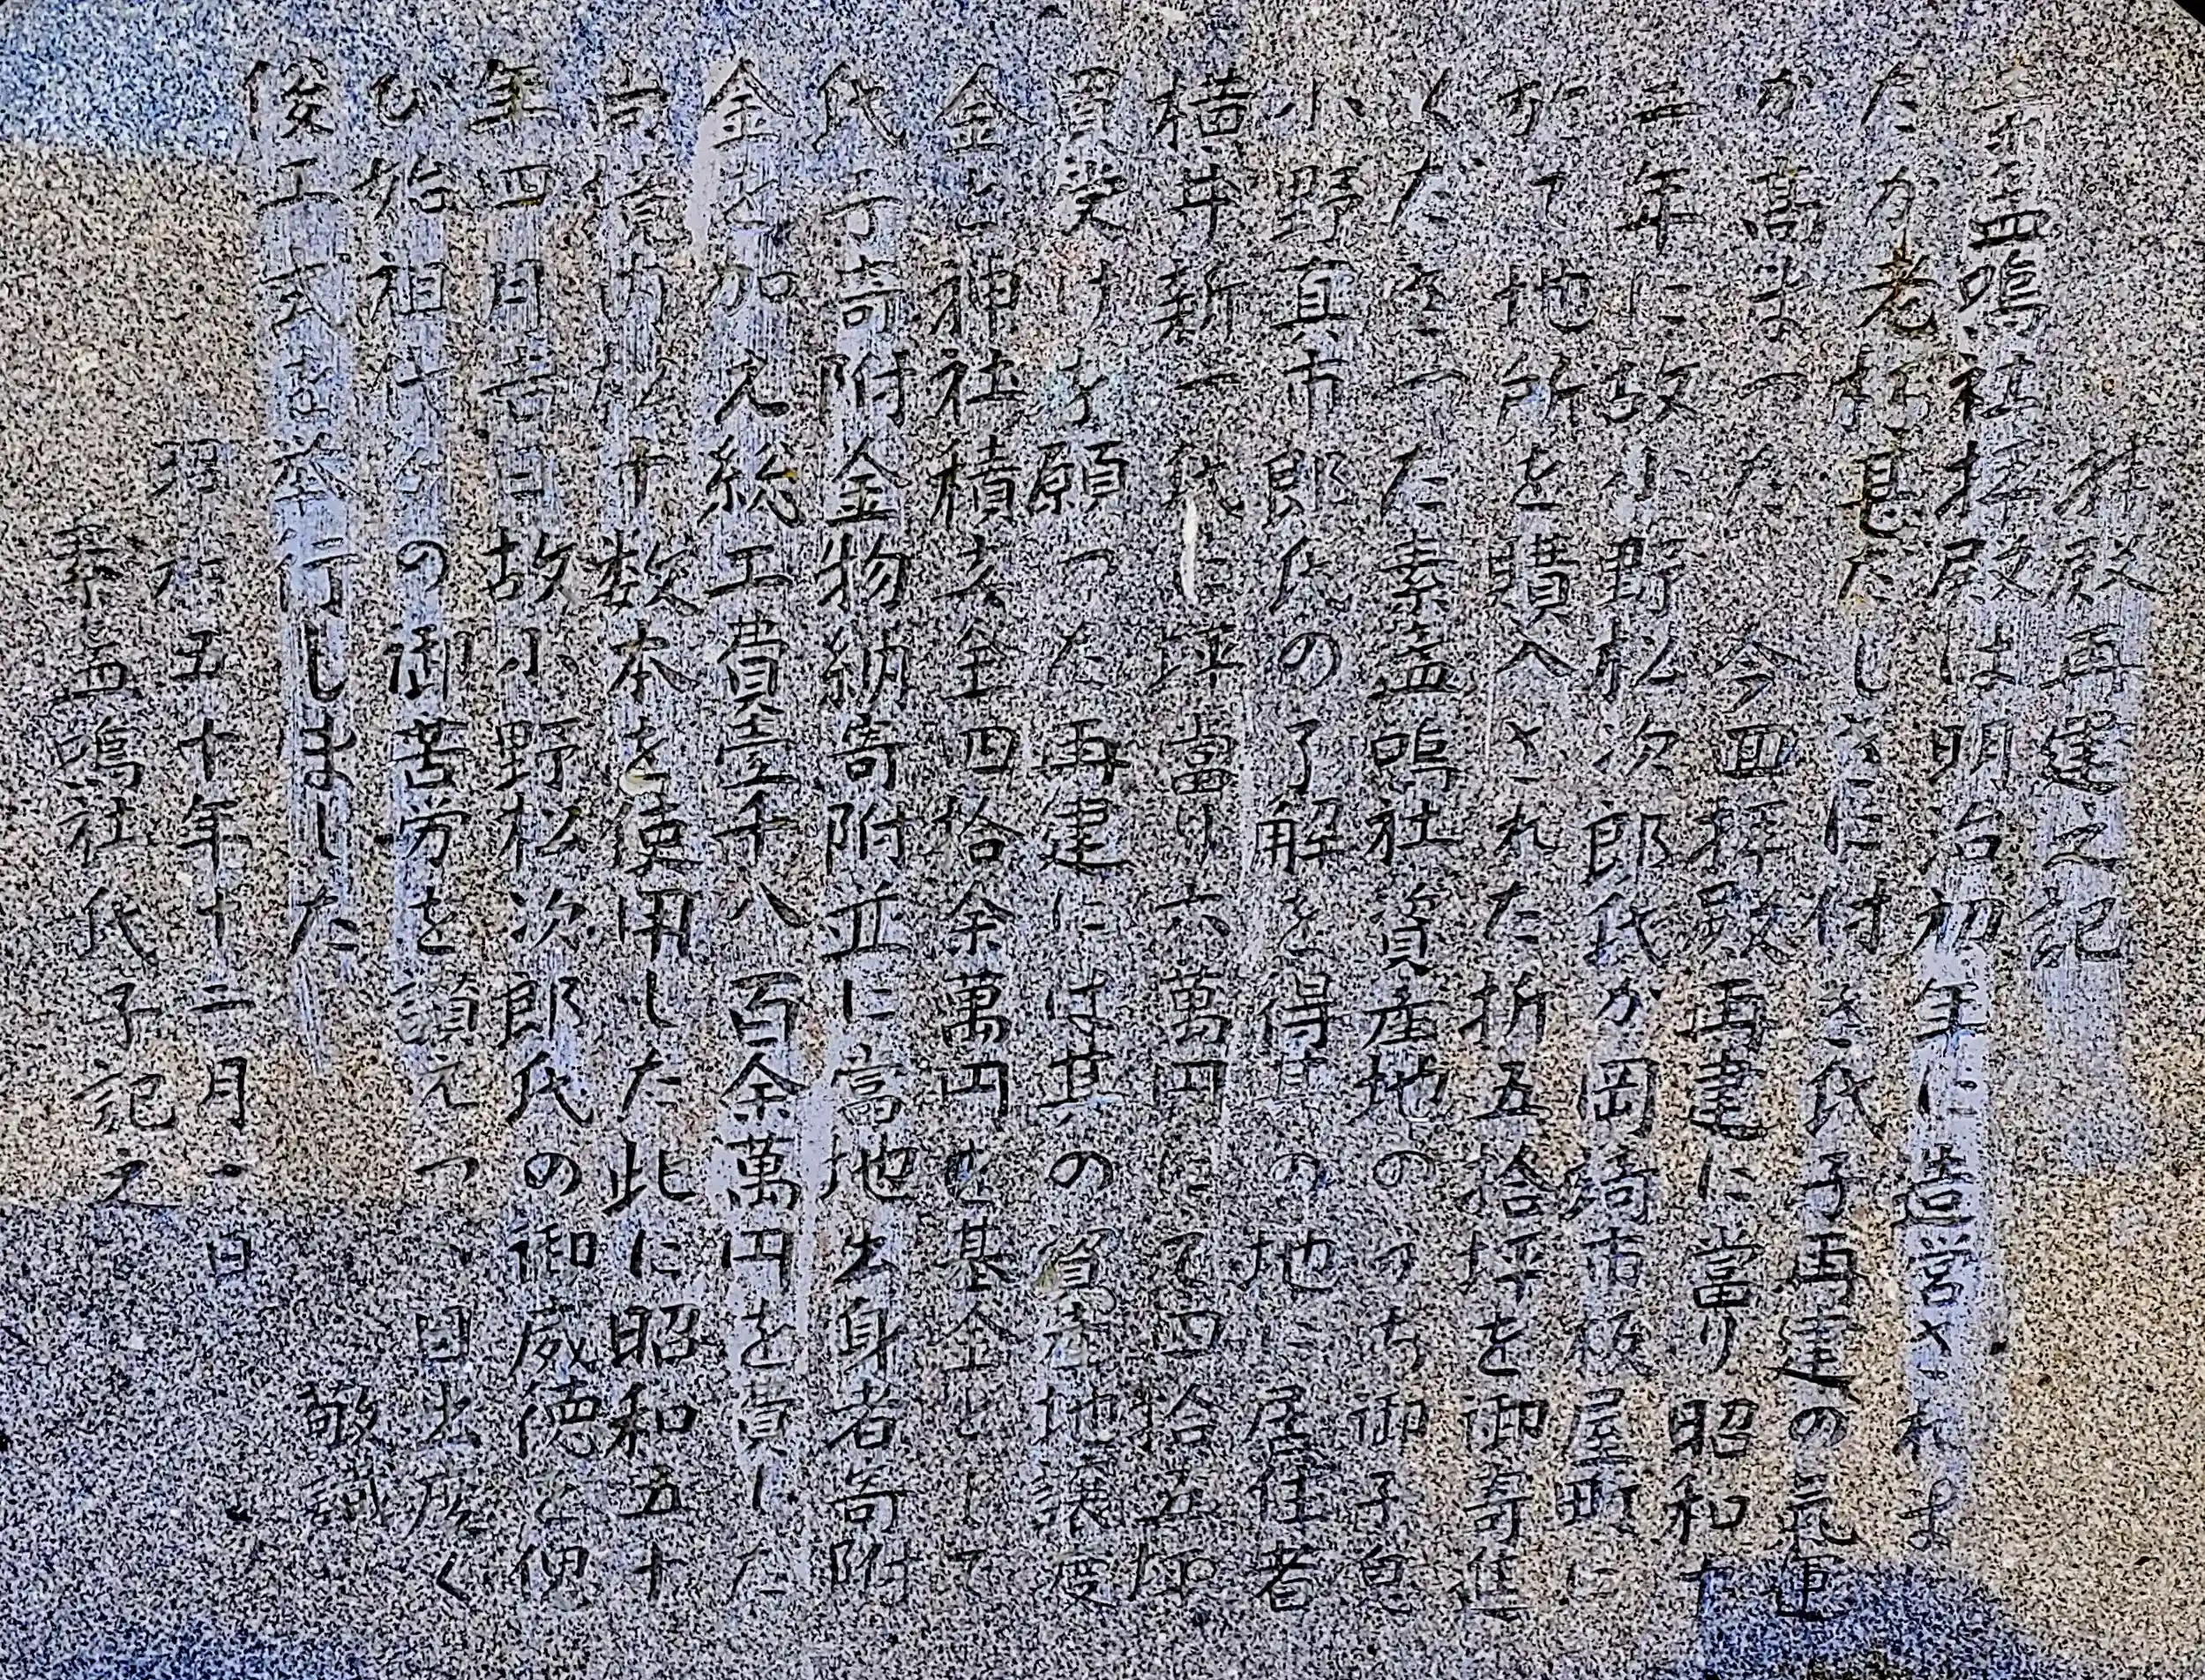 拝殿再建之記
素盃鳴社拝殿は明治初年に造営されま
したが老朽甚だしきに付き氏子再建の氣運
が高まった 今回拝殿再建に當り昭和十
二年に故小野松次郎氏が岡崎市板屋町に
於て地所を購入された折五拾坪を御寄進
くださった素盃鳴社資産地のうち御子息
小野真市郎氏の了解を得其の地に居住者
横井新一氏に坪當り六萬円にて四拾五坪
買受けを願った 再建には其の資産地譲度
金と神社積立金四拾余萬円を基金として
氏子寄附金物納寄附並に當地出身者寄附
金を加え総工費壹千八百余萬円を費した
尚境内松十数本を使用した此に昭和五十
年四月吉日故小野松次郎氏の御威徳を偲
び始祖代々の御苦労を讃えつゝ目出度く
俊工式を挙行しました 敬識
昭和五十年十二月一日
素盃鳴社氏子記之